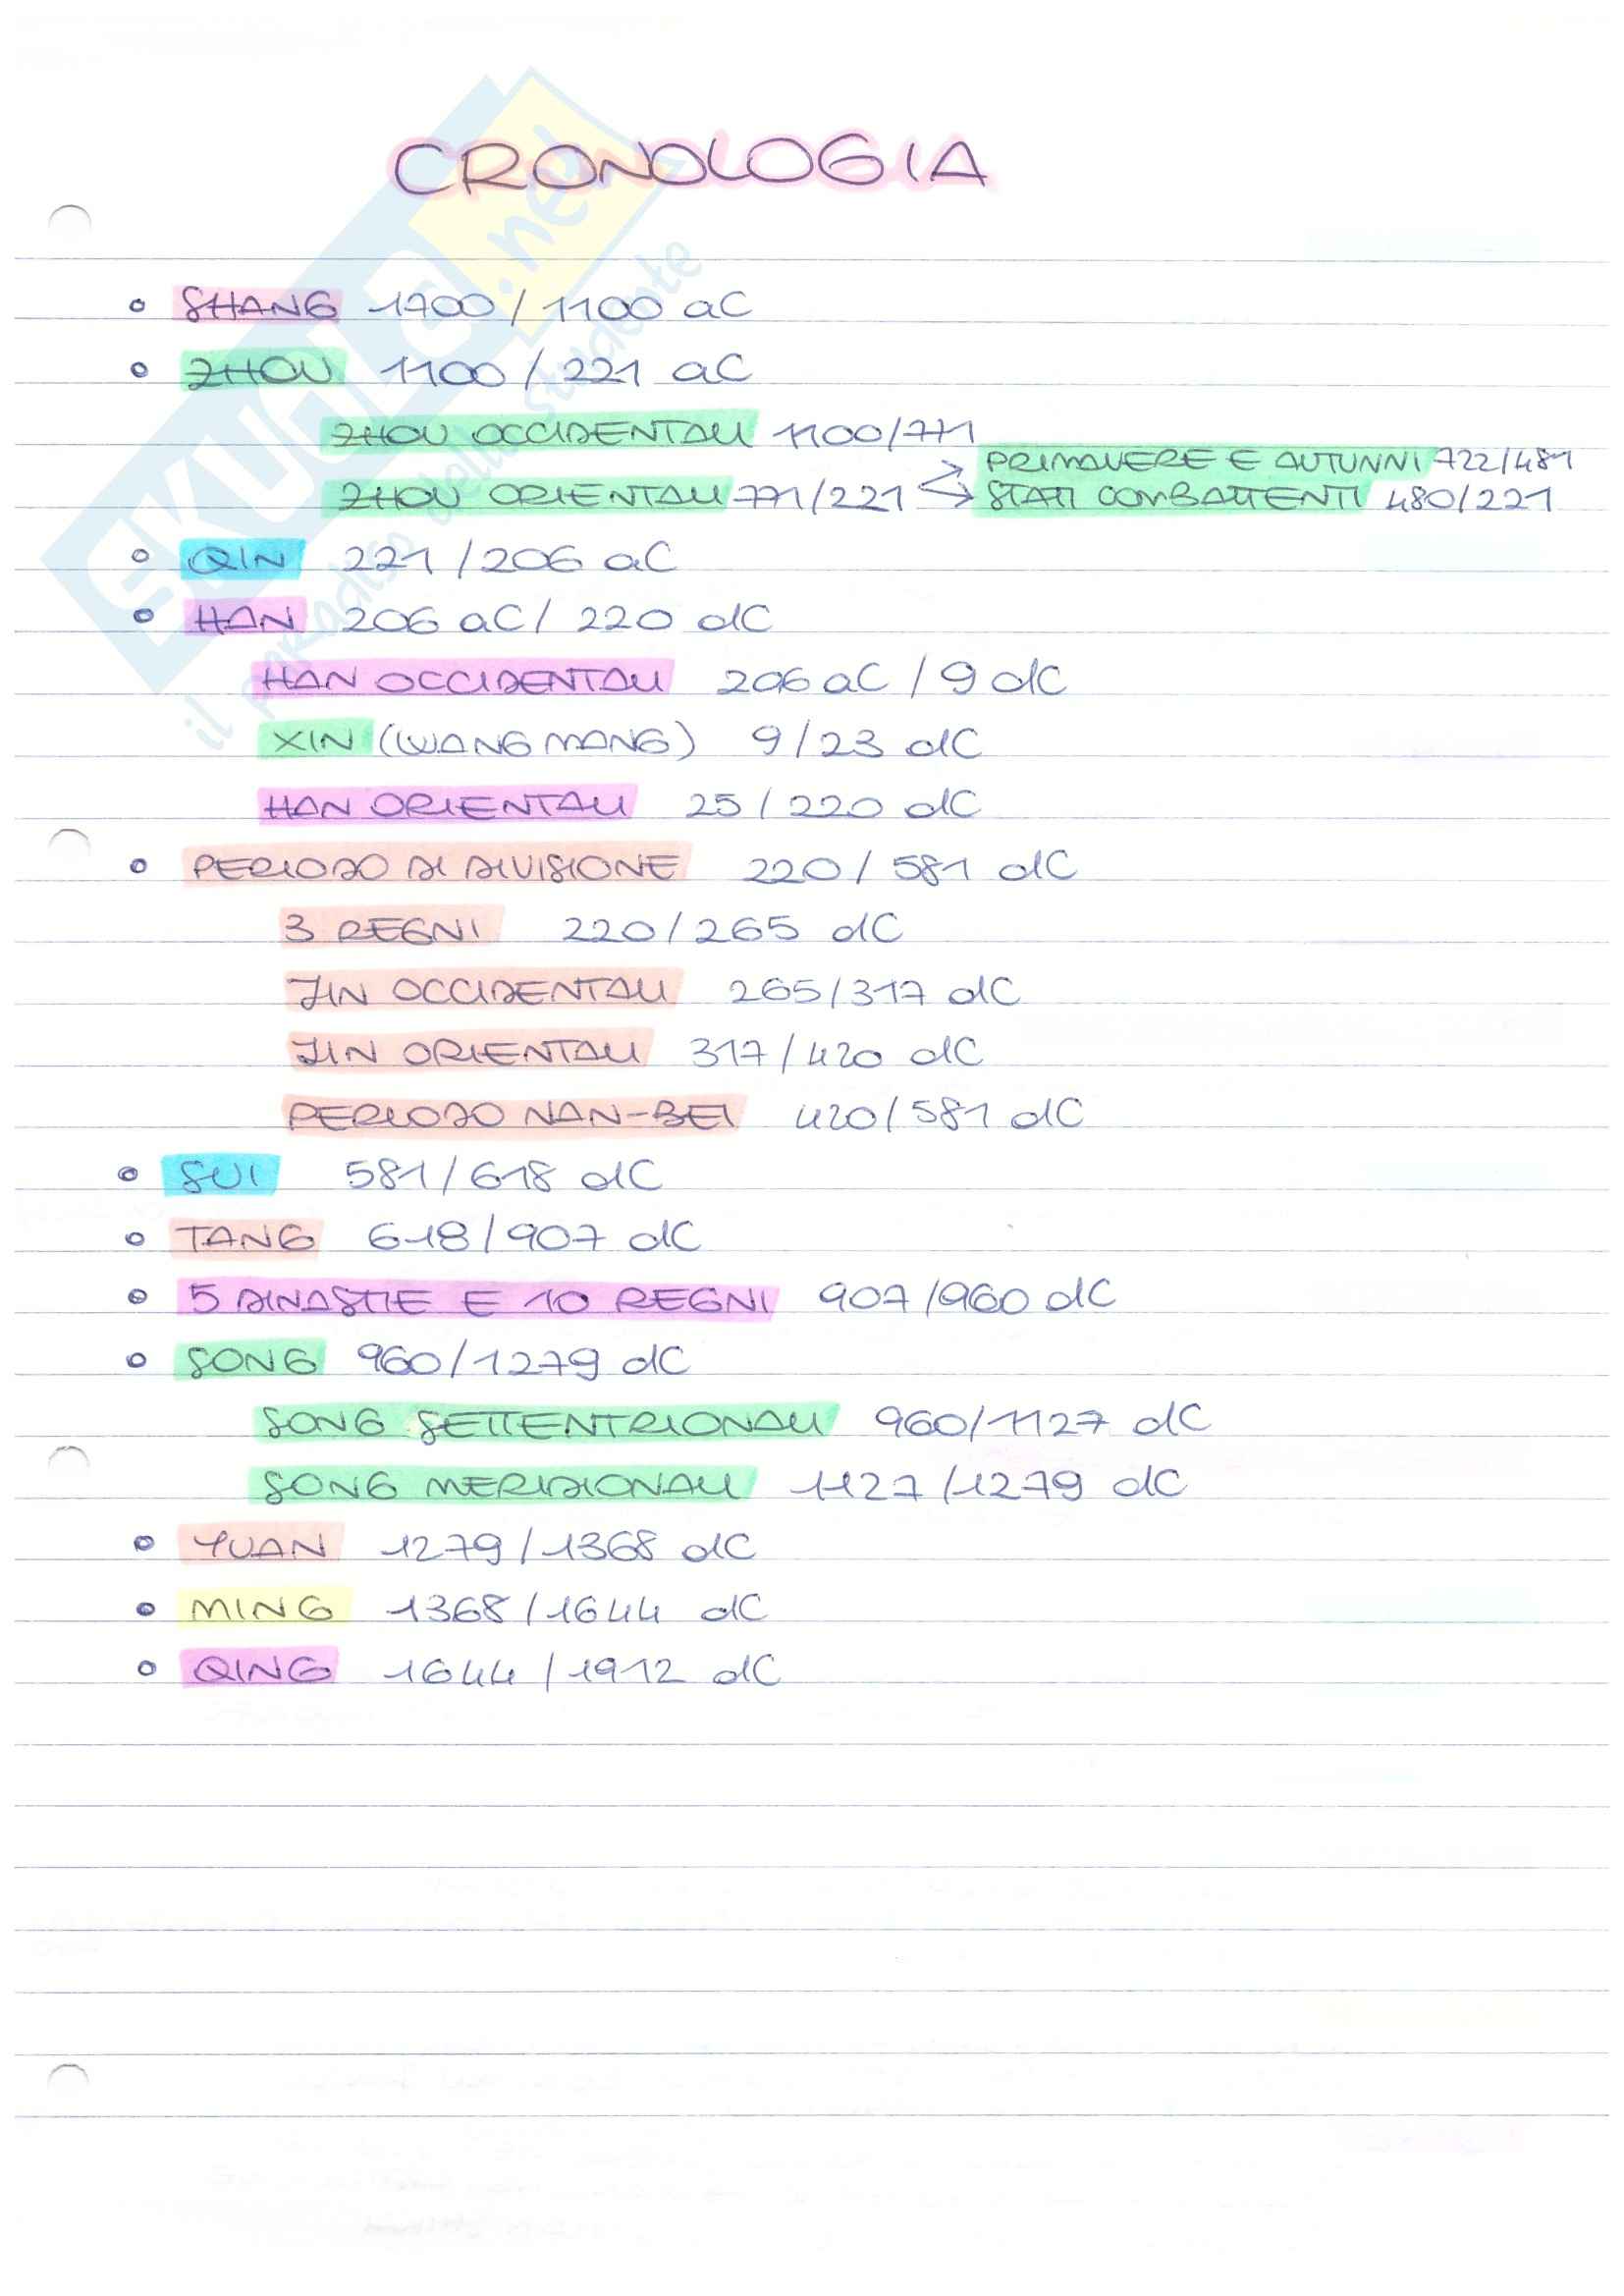 CRONOLOGIA
SHANG 1700/1100 aC
ZHOU 1100/221 aC
ZHOU OCCIDENTALI 1100/771
PRIMAVERE E AUTUNNI 722/481
ZHOU ORIENTALI 771/221
STATI COMBATTENTI 480/221
QIN 221/206 aC
HAN 206 aC/ 220 dC
HAN OCCIDENTALI 206 aC / 9 dC
XIN (WANG MANG) 9/23 dC
HAN ORIENTALI 25/220 dC
PERIODO DI DIVISIONE 220/581 dC
3 REGNI 220/265 dC
JIN OCCIDENTALI 265/317 dC
JIN ORIENTALI 317/420 dC
PERIODO NAN-BEI 420/581 dC
SUI 581/618 dC
TANG 618/907 dC
5 DINASTIE E 10 REGNI 907/960 dC
SONG 960/1279 dC
SONG SETTENTRIONALI 960/1127 dC
SONG MERIDIONALI 1127/1279 dC
YUAN 1279/1368 dC
MING 1368/1644 dC
QING 1644/1912 dC
SKUOLA.net
il paradiso dello studente